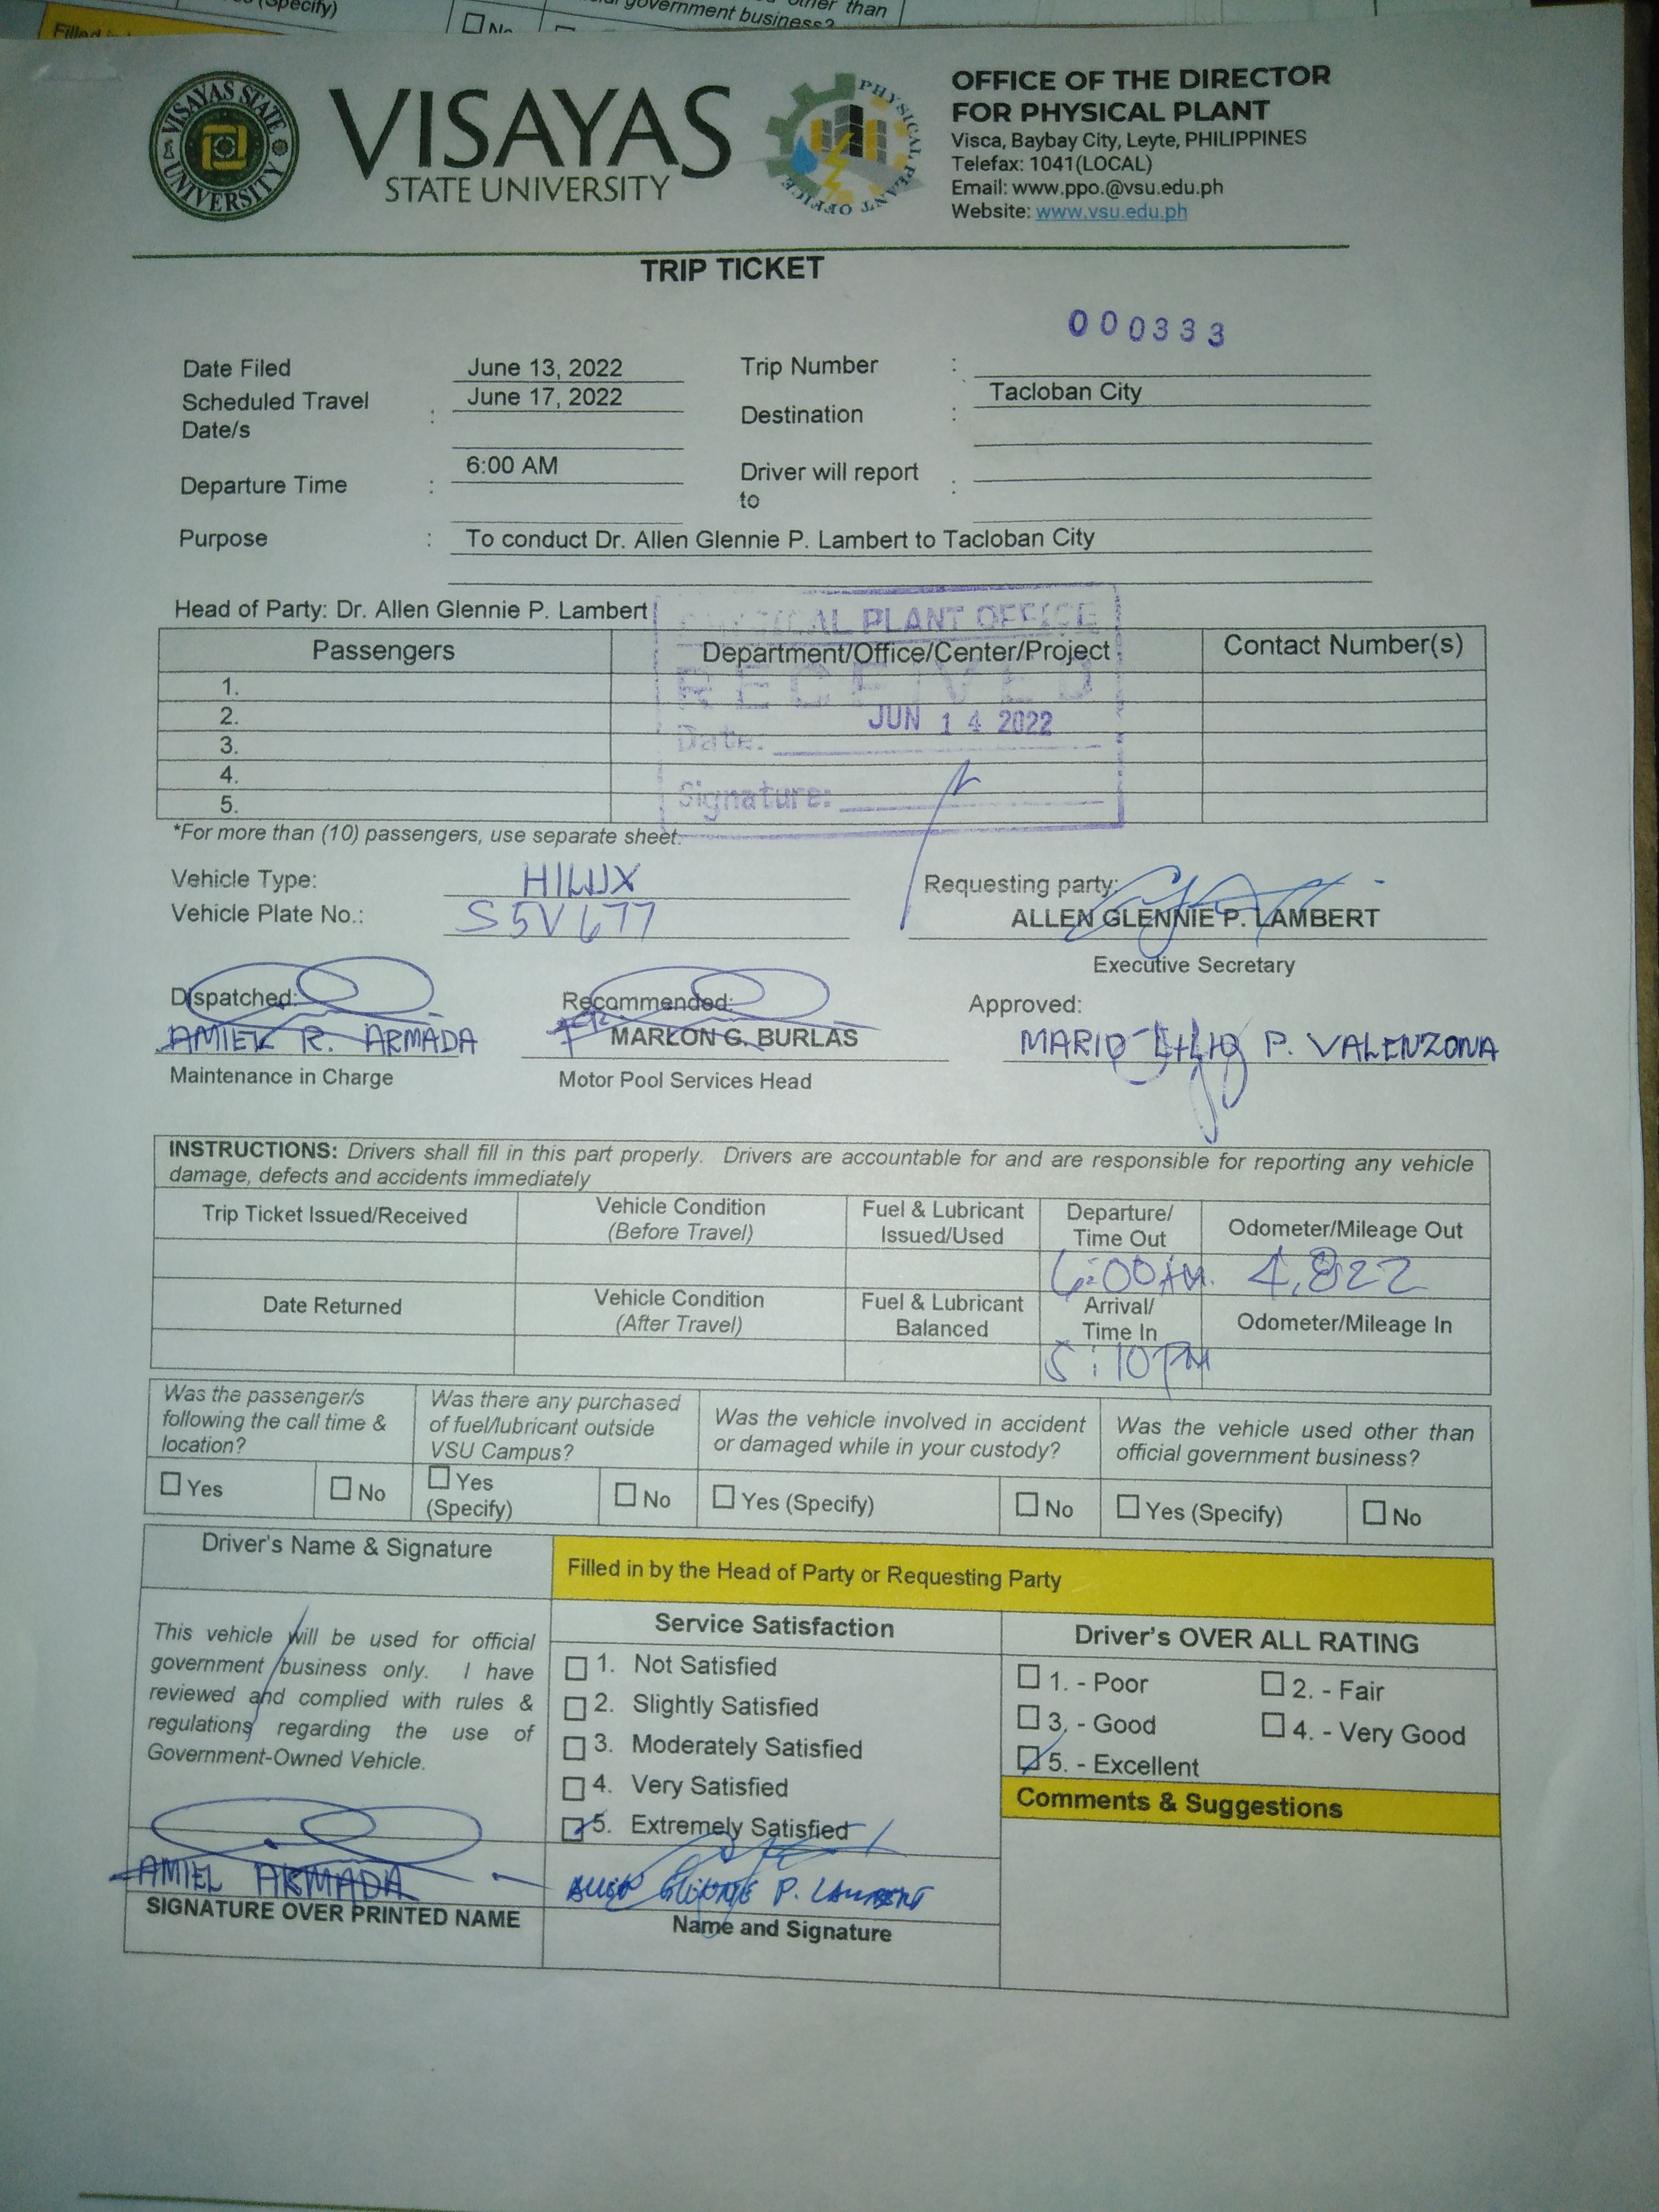 (Specify)
Filled
No
government business?
other than
VISAYAS STATE UNIVERSITY
VISAYAS
STATE UNIVERSITY
PHYSICAL PLANT OFFICE
OFFICE OF THE DIRECTOR
FOR PHYSICAL PLANT
Visca, Baybay City, Leyte, PHILIPPINES
Telefax: 1041(LOCAL)
Email: www.ppo.@vsu.edu.ph
Website: www.vsu.edu.ph
TRIP TICKET
000333
Date Filed June 13, 2022 Trip Number :
Scheduled Travel Date/s : June 17, 2022 Destination : Tacloban City
Departure Time : 6:00 AM Driver will report to :
Purpose : To conduct Dr. Allen Glennie P. Lambert to Tacloban City
Head of Party: Dr. Allen Glennie P. Lambert
PHYSICAL PLANT OFFICE
RECEIVED
Date: JUN 14 2022
Signature:
Passengers Department/Office/Center/Project Contact Number(s)
1.
2.
3.
4.
5.
*For more than (10) passengers, use separate sheet.
Vehicle Type: HILUX
Vehicle Plate No.: S5V677
Requesting party:
ALLEN GLENNIE P. LAMBERT
Executive Secretary
Dispatched: Recommended: Approved:
AMIEL R. ARMADA MARLON G. BURLAS MARIO LILIO P. VALENZONA
Maintenance in Charge Motor Pool Services Head
INSTRUCTIONS: Drivers shall fill in this part properly. Drivers are accountable for and are responsible for reporting any vehicle
damage, defects and accidents immediately
Trip Ticket Issued/Received Vehicle Condition (Before Travel) Fuel & Lubricant Issued/Used Departure/ Time Out Odometer/Mileage Out
6:00AM. 4,822
Date Returned Vehicle Condition (After Travel) Fuel & Lubricant Balanced Arrival/ Time In Odometer/Mileage In
5:10PM
Was the passenger/s following the call time & location?
Was there any purchased of fuel/lubricant outside VSU Campus?
Was the vehicle involved in accident or damaged while in your custody?
Was the vehicle used other than official government business?
Yes No Yes (Specify) No Yes (Specify) No Yes (Specify) No
Driver's Name & Signature
Filled in by the Head of Party or Requesting Party
This vehicle will be used for official
government business only. I have
reviewed and complied with rules &
regulations regarding the use of
Government-Owned Vehicle.
AMIEL ARMADA
SIGNATURE OVER PRINTED NAME
Service Satisfaction
1. Not Satisfied
2. Slightly Satisfied
3. Moderately Satisfied
4. Very Satisfied
5. Extremely Satisfied
ALLEN GLENNIE P. LAMBERT
Name and Signature
Driver's OVER ALL RATING
1. - Poor 2. - Fair
3, - Good 4. - Very Good
5. - Excellent
Comments & Suggestions